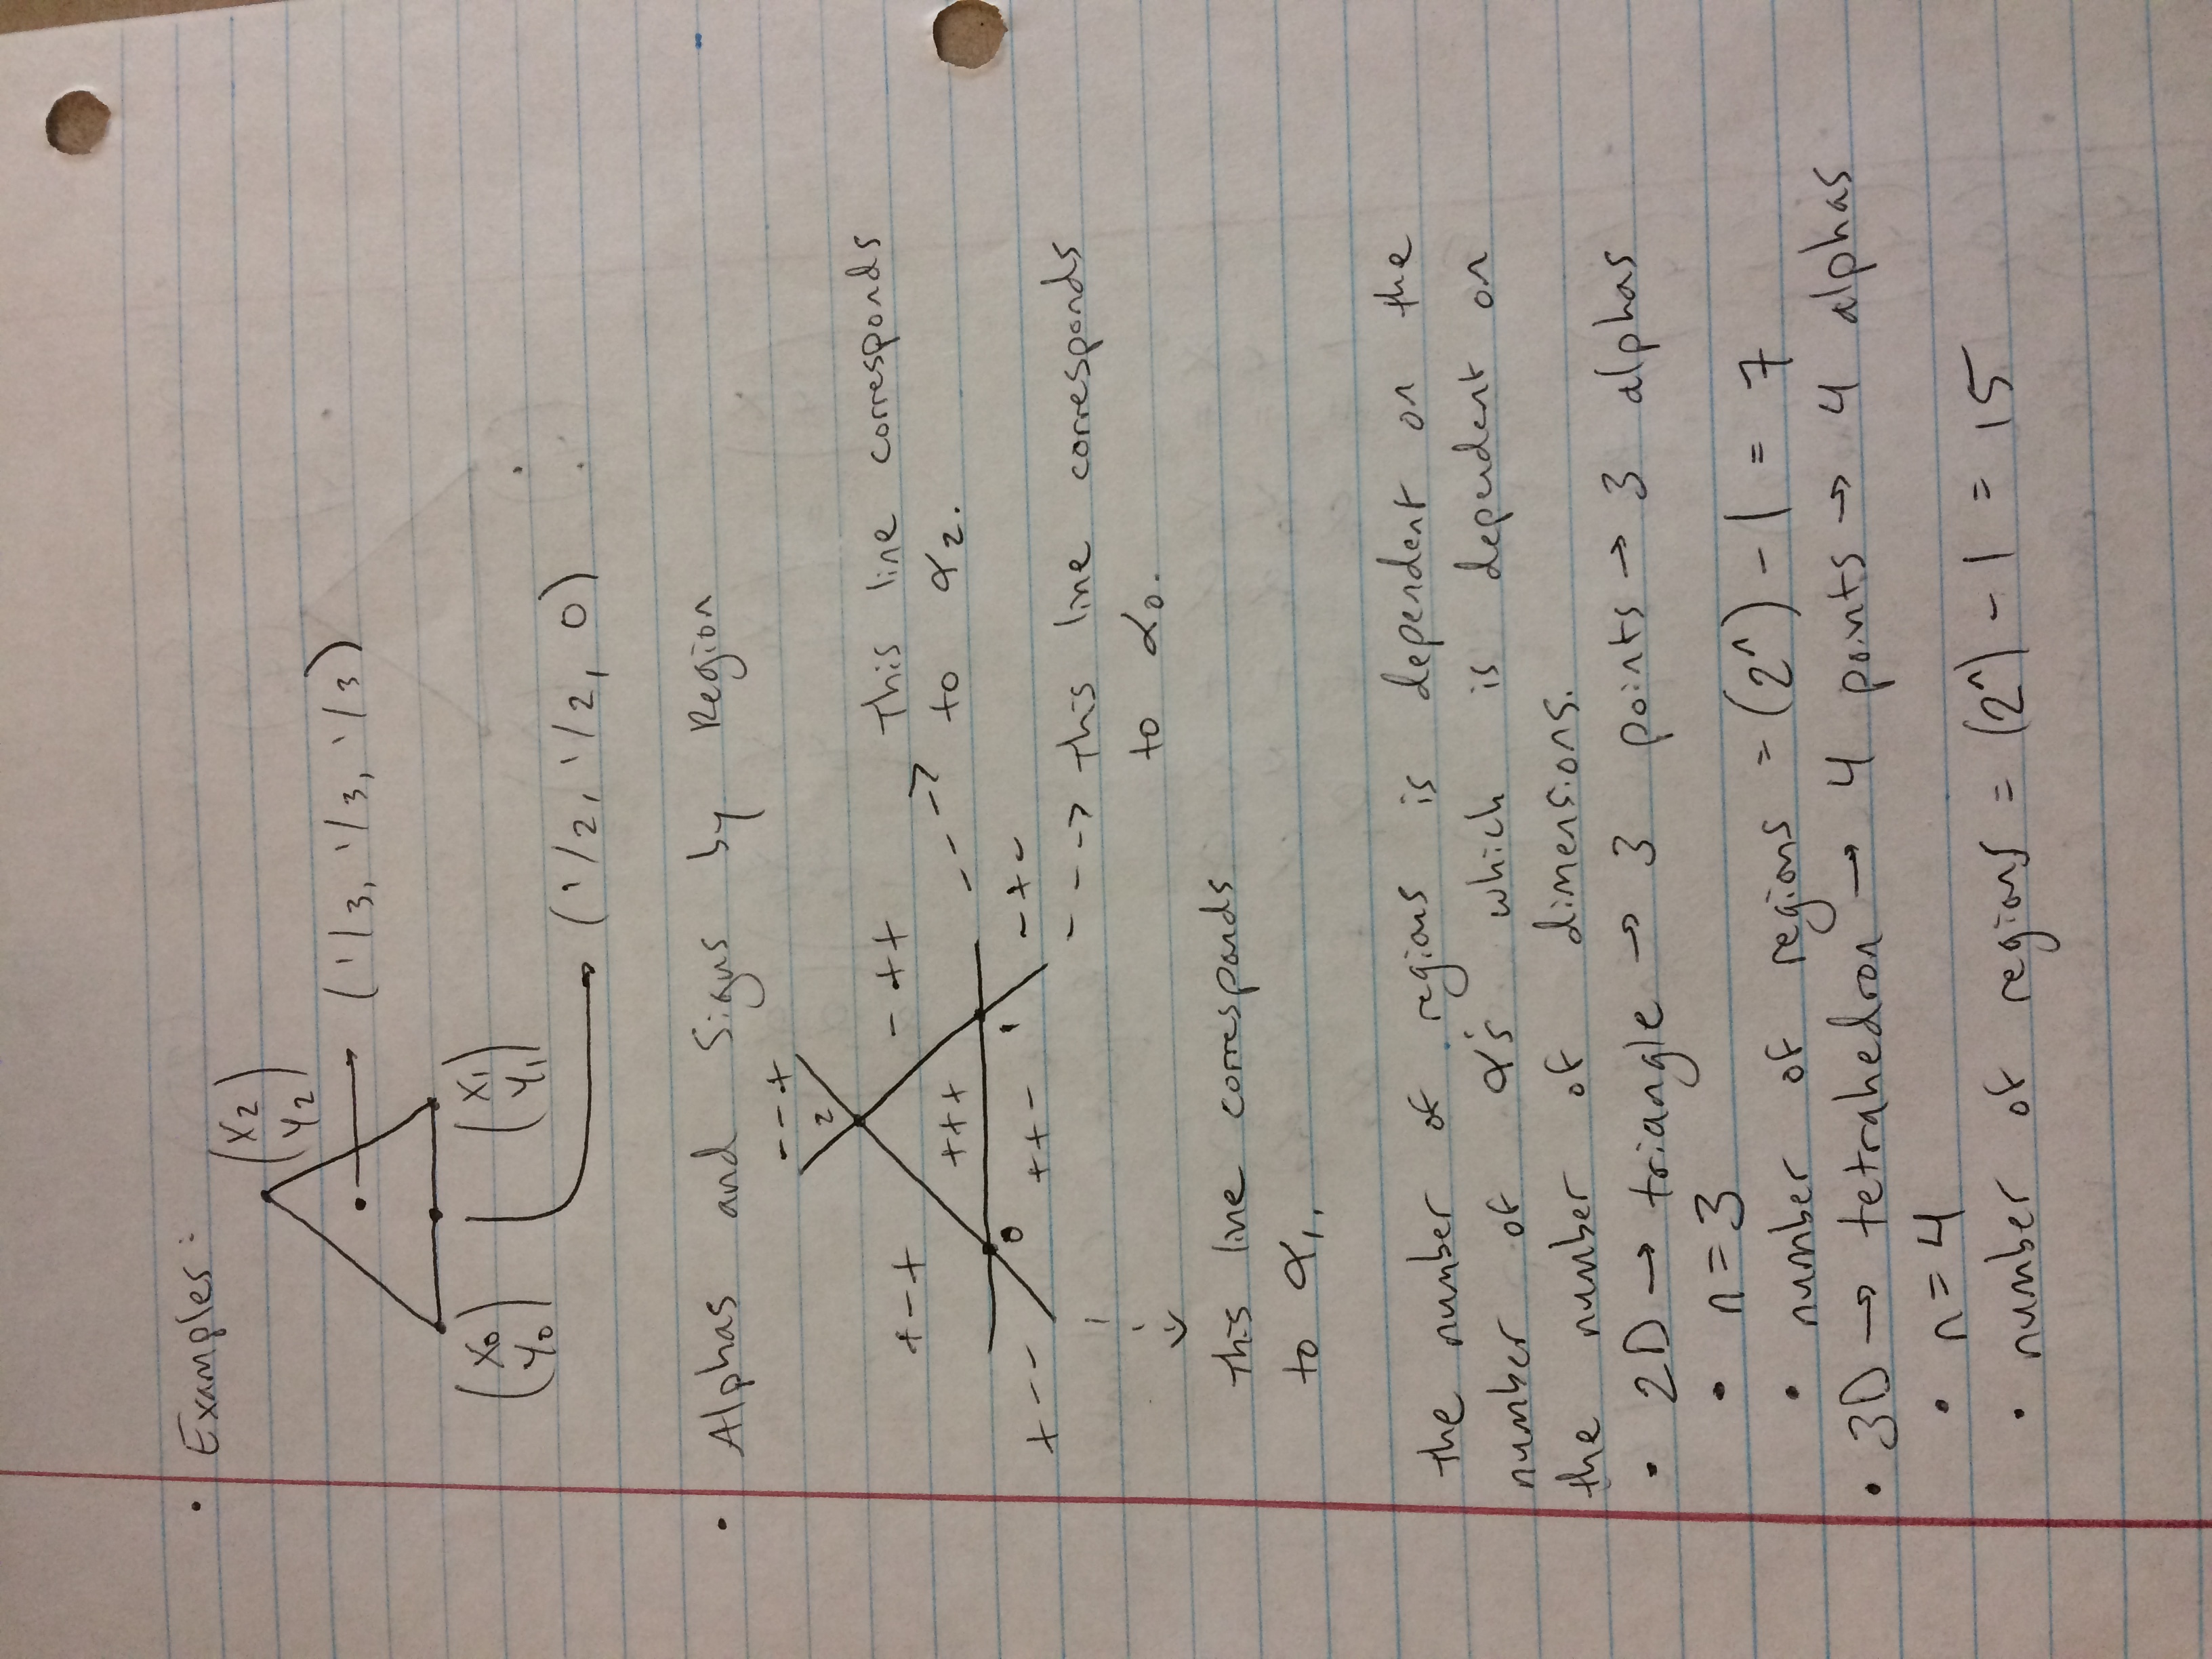 • Examples:
(x2 y2)
(1/3, 1/3, 1/3)
(x0 y0) (x1 y1)
(1/2, 1/2, 0)
• Alphas and Signs by Region
- - +
2
+ - + - + + This line corresponds
+ + + to α2.
0 1
+ - - + + - - + - this line corresponds
to α0.
this line corresponds
to α1.
the number of regions is dependent on the
number of α's which is dependent on
the number of dimensions.
• 2D → triangle → 3 points → 3 alphas
• n = 3
• number of regions = (2^n) - 1 = 7
• 3D → tetrahedron → 4 points → 4 alphas
• n = 4
• number of regions = (2^n) - 1 = 15